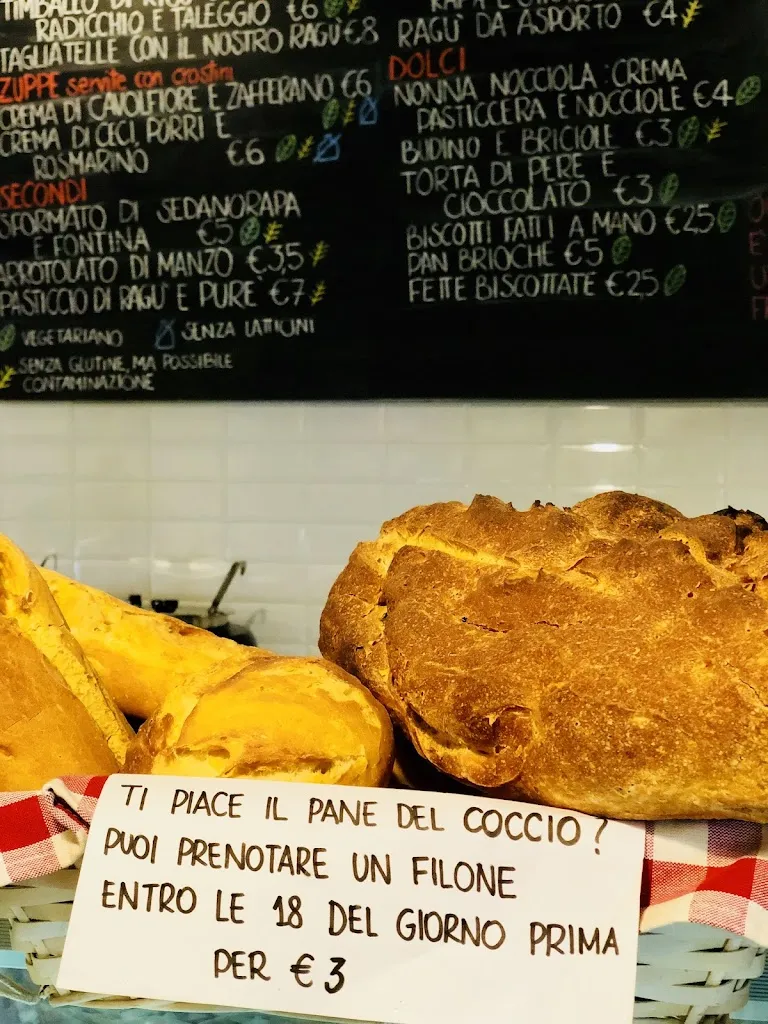 TIMBALLO DI RISO
RADICCHIO E TALEGGIO €6
TAGLIATELLE CON IL NOSTRO RAGÙ €8
ZUPPE servite con crostini
CREMA DI CAVOLFIORE E ZAFFERANO €6
CREMA DI CECI, PORRI E
ROSMARINO €6
SECONDI
SFORMATO DI SEDANORAPA
E FONTINA €5
ARROTOLATO DI MANZO €3,5
PASTICCIO DI RAGU' E PURE' €7
VEGETARIANO SENZA LATTICINI
SENZA GLUTINE, MA POSSIBILE
CONTAMINAZIONE
RAGÙ DA ASPORTO €4
DOLCI
NONNA NOCCIOLA: CREMA
PASTICCERA E NOCCIOLE €4
BUDINO E BRICIOLE €3
TORTA DI PERE E
CIOCCOLATO €3
BISCOTTI FATTI A MANO €25
PAN BRIOCHE €5
FETTE BISCOTTATE €25
TI PIACE IL PANE DEL COCCIO?
PUOI PRENOTARE UN FILONE
ENTRO LE 18 DEL GIORNO PRIMA
PER €3